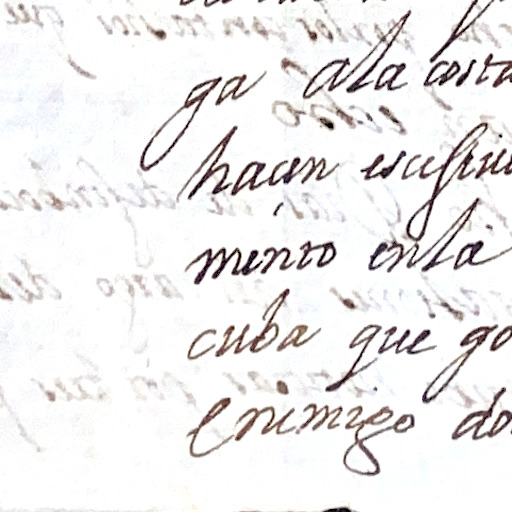 ga ala costa
hacen
mento enla
cuba que go
enemigo do